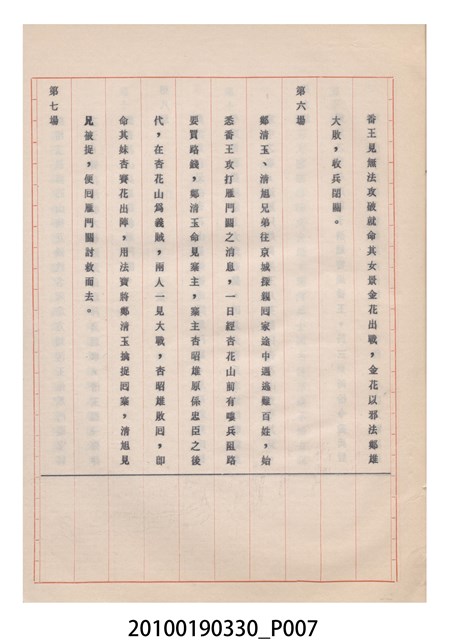 番王見無法攻破就命其女景金花出戰，金花以邪法鄭雄
大敗，收兵閉關。
第六場
鄭清玉、清旭兄弟往京城探親回家途中遇逃難百姓，始
悉番王攻打雁門關之消息，一日經杏花山前有嘍兵阻路
要買路錢，鄭清玉命見寨主，寨主杏昭雄原係忠臣之後
代，在杏花山爲義賊，兩人一見大戰，杏昭雄敗回，即
命其妹杏賽花出陣，用法寶將鄭清玉擒捉回寨，清旭見
兄被捉，便回雁門關討救而去。
第七場
20100190330_P007